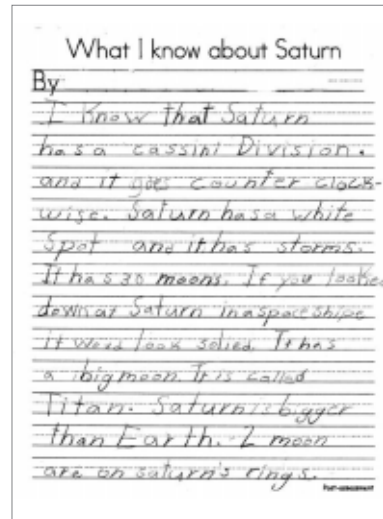 What I know about Saturn
By
I Know that Saturn
has a cassini Division.
and it goes counter clock-
wise. Saturn has a white
Spot and it has storms.
It has 30 moons. If you looked
down at Saturn in a space shipe
it woud look solied. It has
a big moon. It is called
Titan. Saturn is bigger
than Earth. 2 moon
are on saturn's rings.
Post-assessment